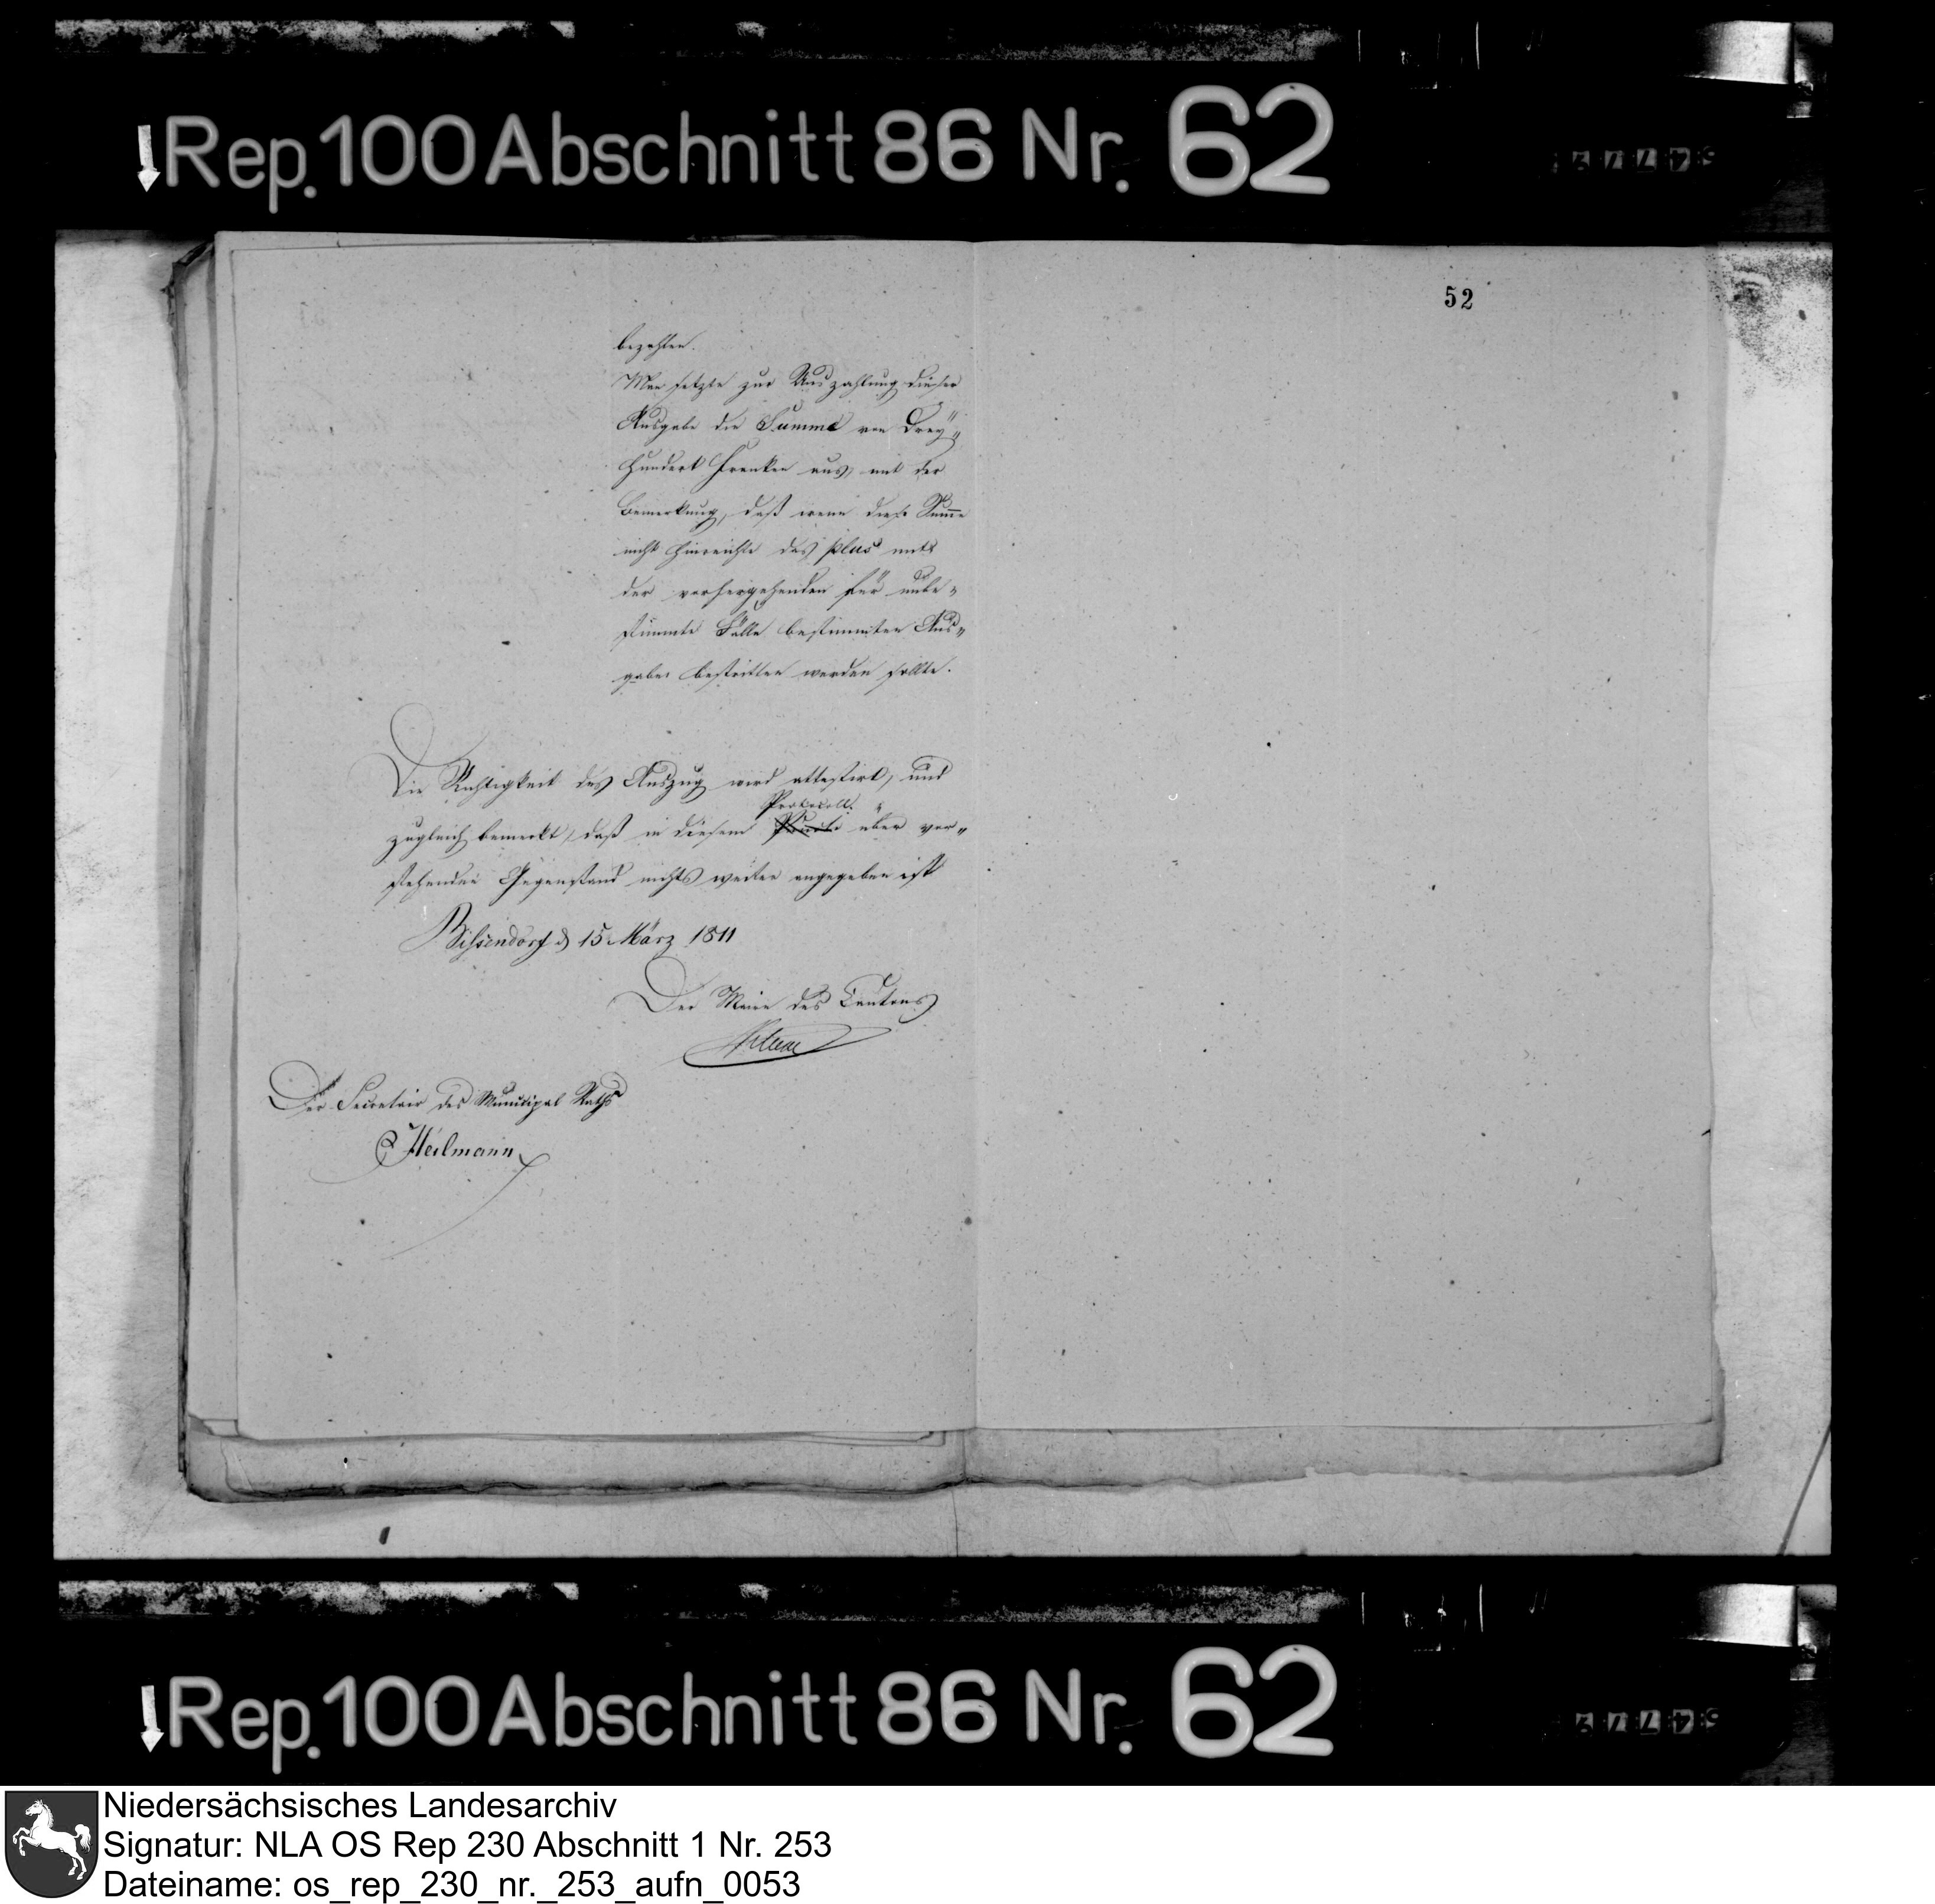 Rep. 100 Abschnitt 86 Nr. 62
52
bezahlen.
Man setzte zur Auszahlung dieser
Ausgabe die Summe von Drey„
hundert Franken aus, mit der
Bemerkung, daß wenn diese Summe
nicht hinreichte das plus mit
der vorhergehenden für unbe„
stimmte Fälle bestimmten Aus„
gabe bestritten werden sollte.
Die Richtigkeit des Auszug wird attestirt, und
Protocoll.
zugleich bemerkt, daß in diesem über vor„
stehenden Gegenstand nichts weiter angegeben ist
Bissendorf d 15 März 1811
Der Maire des Cantons
Der Secretair des Municipal Raths
Heilmann
Rep. 100 Abschnitt 86 Nr. 62
Niedersächsisches Landesarchiv
Signatur: NLA OS Rep 230 Abschnitt 1 Nr. 253
Dateiname: os_rep_230_nr._253_aufn_0053